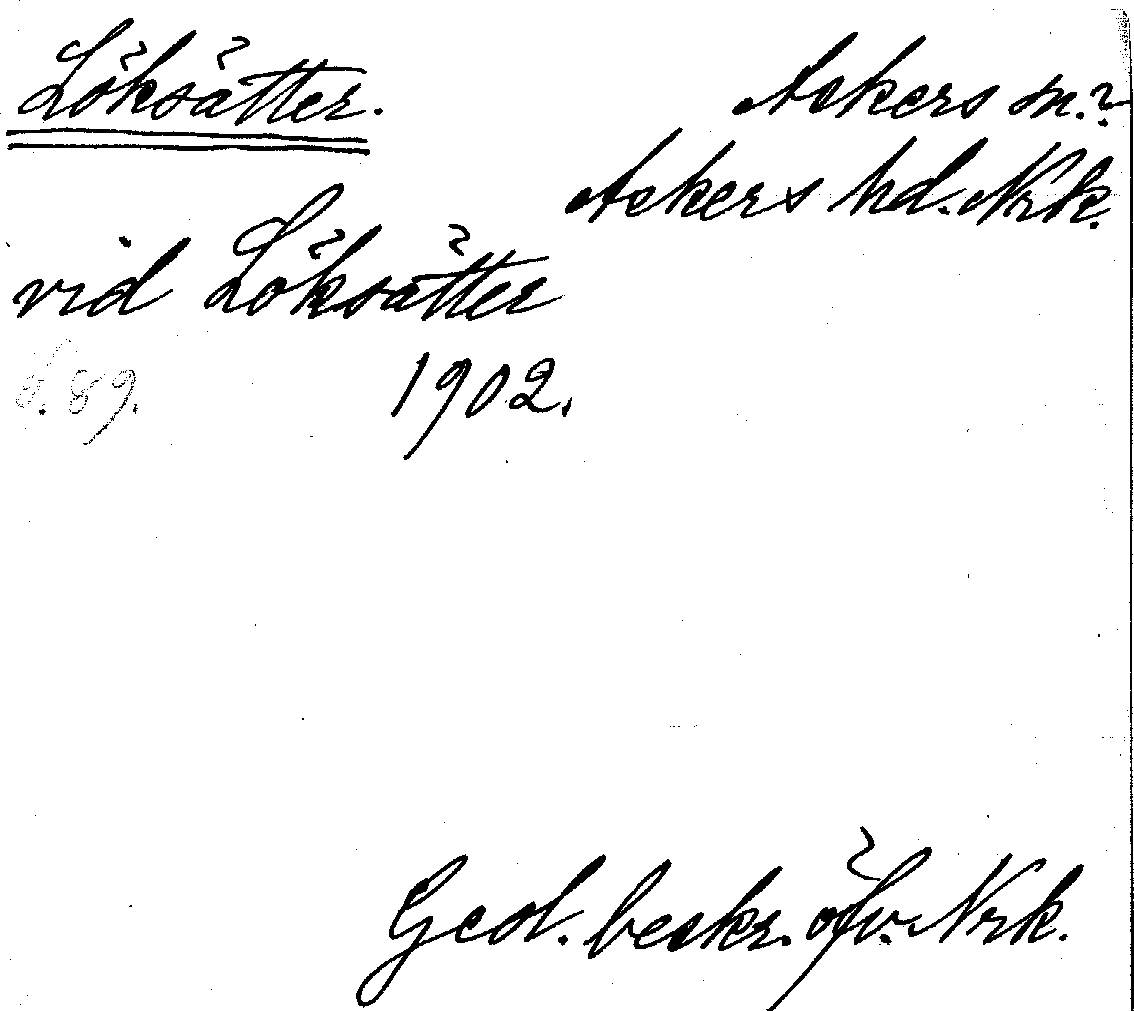 Löksätter.
Askers sn.?
Askers hd. Nrk.
vid Löksätter
1902.
s. 89.
Geol. beskr. öfv. Nrk.